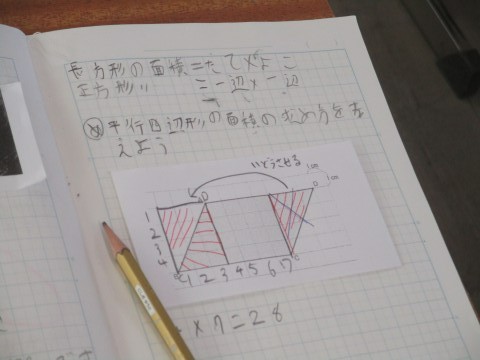 長方形の面積=たて×よこ
正方形〃 =一辺×一辺
め 平行四辺形の面積の求め方を考
えよう
いどうさせる
1cm
1cm
D
1
2
3
4
1 2 3 4 5 6 7
C
×7=28